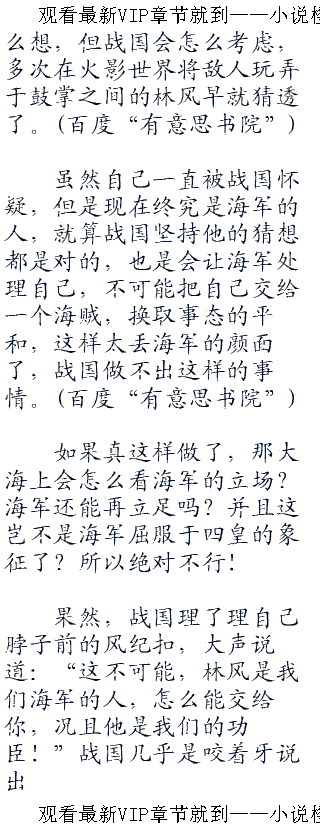 观看最新VIP章节就到——小说检
么想，但战国会怎么考虑，
多次在火影世界将敌人玩弄
于鼓掌之间的林风早就猜透
了。(百度“有意思书院”)
虽然自己一直被战国怀
疑，但是现在终究是海军的
人，就算战国坚持他的猜想
都是对的，也是会让海军处
理自己，不可能把自己交给
一个海贼，换取事态的平
和，这样太丢海军的颜面
了，战国做不出这样的事
情。(百度“有意思书院”)
如果真这样做了，那大
海上会怎么看海军的立场？
海军还能再立足吗？并且这
岂不是海军屈服于四皇的象
征了？所以绝对不行！
果然，战国理了理自己
脖子前的风纪扣，大声说
道：“这不可能，林风是我
们海军的人，怎么能交给
你，况且他是我们的功
臣！”战国几乎是咬着牙说
出
观看最新VIP章节就到——小说检